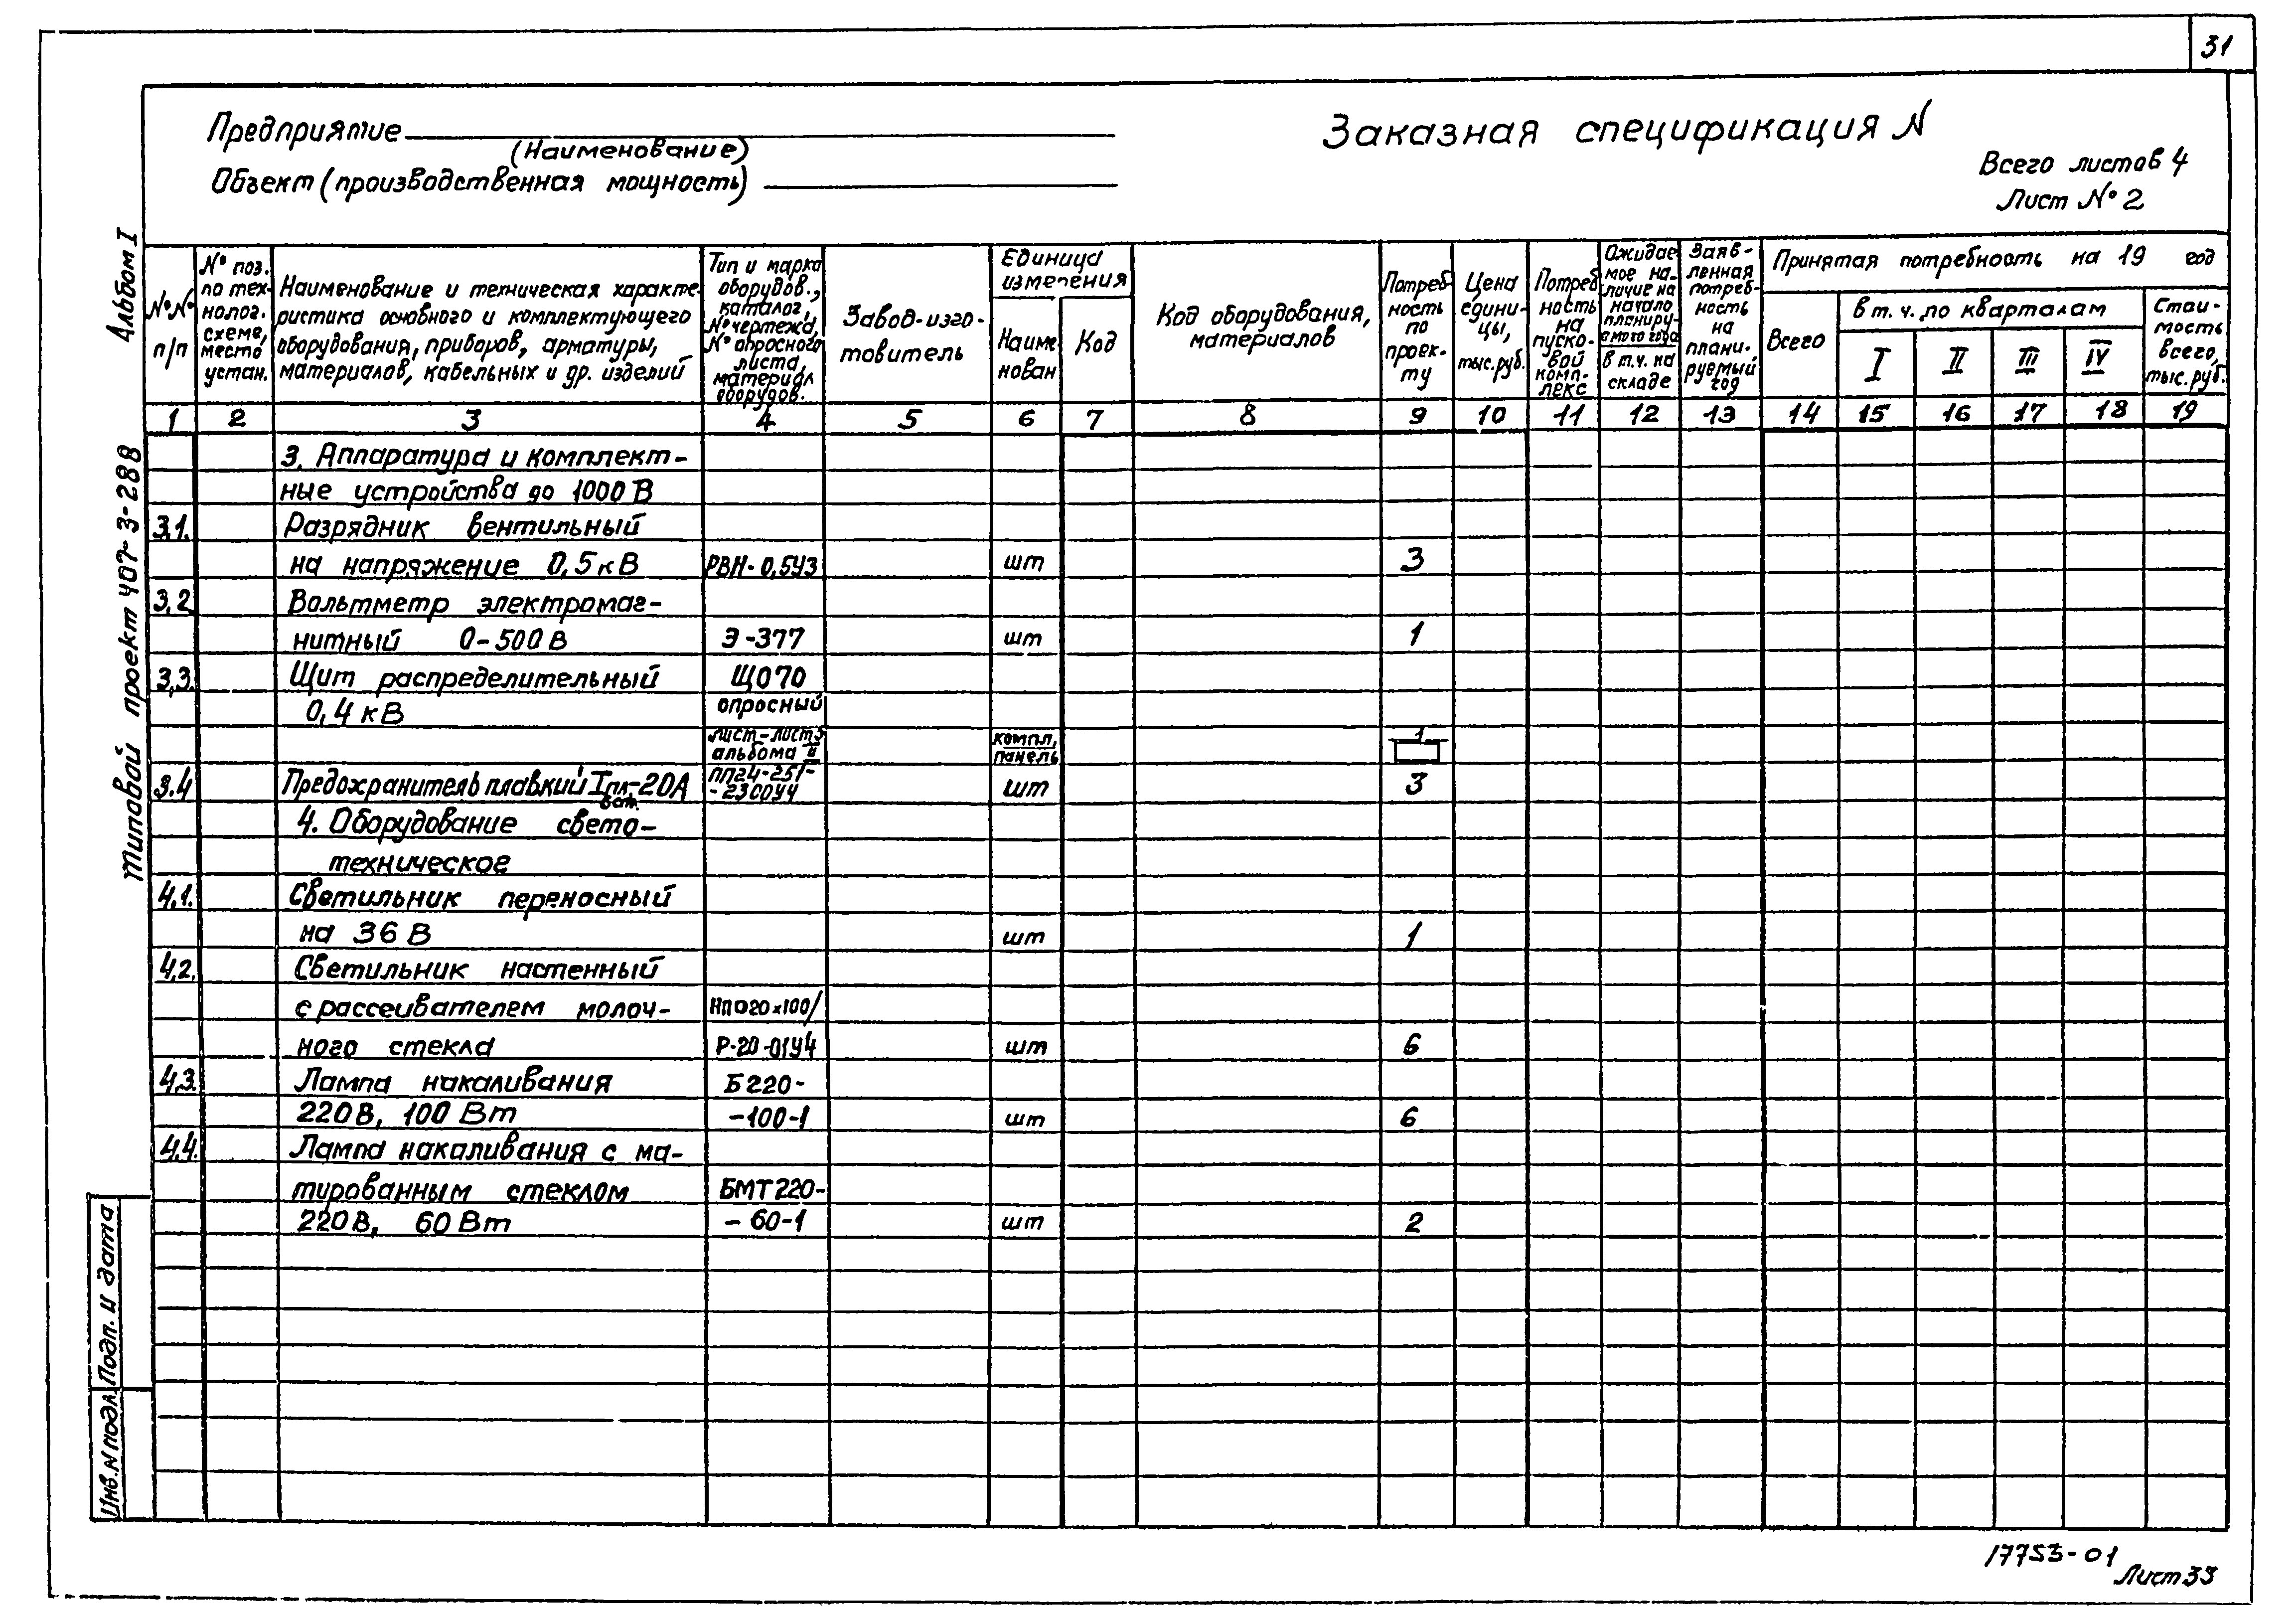 31
Предприятие
(Наименование)
Объект (производственная мощность)
Заказная спецификация N
Всего листов 4
Лист № 2
Альбом I
Типовой проект 407-3-288
№№ п/п
№ поз. по технолог. схеме, место устан.
Наименование и техническая характе-
ристика основного и комплектующего
оборудования, приборов, арматуры,
материалов, кабельных и др. изделий
Тип и марка
оборудов.,
каталог,
№ чертежа,
№ опросного
листа,
материал
оборудов.
Завод-изго-
товитель
Единица
измерения
Наиме
нован
Код
Код оборудования,
материалов
Потреб
ность
по
проек-
ту
Цена
едини-
цы,
тыс. руб.
Потреб
ность
на
пуско-
вой
комп-
лекс
Ожидае
мое на-
личие на
начало
планиру-
емого года
в т.ч. на
складе
Заяв-
ленная
потреб-
ность
на
плани-
руемый
год
Принятая потребность на 19 год
Всего
в т. ч. по кварталам
I II III IV
Стои-
мость
всего,
тыс. руб.
1 2 3 4 5 6 7 8 9 10 11 12 13 14 15 16 17 18 19
3. Аппаратура и комплект-
ные устройства до 1000 В
3.1. Разрядник вентильный
на напряжение 0,5 кВ РВН-0,5У3 шт 3
3.2 Вольтметр электромаг-
нитный 0-500 В Э-377 шт 1
3.3. Щит распределительный ЩО70
0,4 кВ опросный
лист-лист 5 компл. 1
альбома II панель
3.4 Предохранитель плавкий Iпл.вст.-20А ПП24-251- шт 3
-23СОУ4
4. Оборудование свето-
техническое
4.1. Светильник переносный
на 36 В шт 1
4.2. Светильник настенный
с рассеивателем молоч- НПО20х100/
ного стекла Р-20-01У4 шт 6
4.3. Лампа накаливания Б220-
220В, 100 Вт -100-1 шт 6
4.4. Лампа накаливания с ма-
тированным стеклом БМТ220-
220В, 60 Вт -60-1 шт 2
Подп. и дата
Инв. N подл.
17753-01
Лист 33